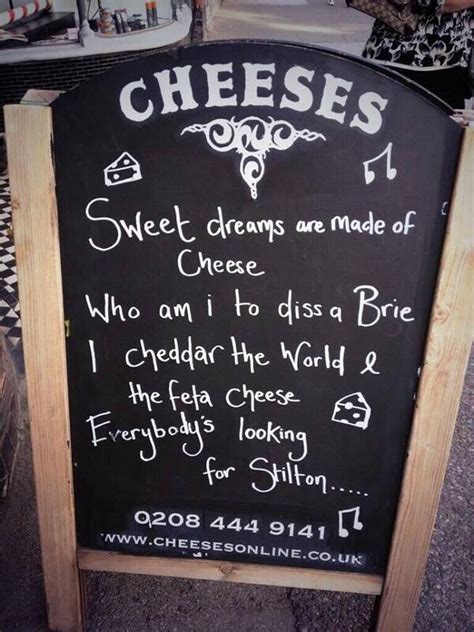 CHEESES
Sweet dreams are made of
Cheese
Who am i to diss a Brie
I cheddar the World &
the feta cheese
Everybody's looking
for Stilton.....
0208 444 9141
WWW.CHEESESONLINE.CO.UK